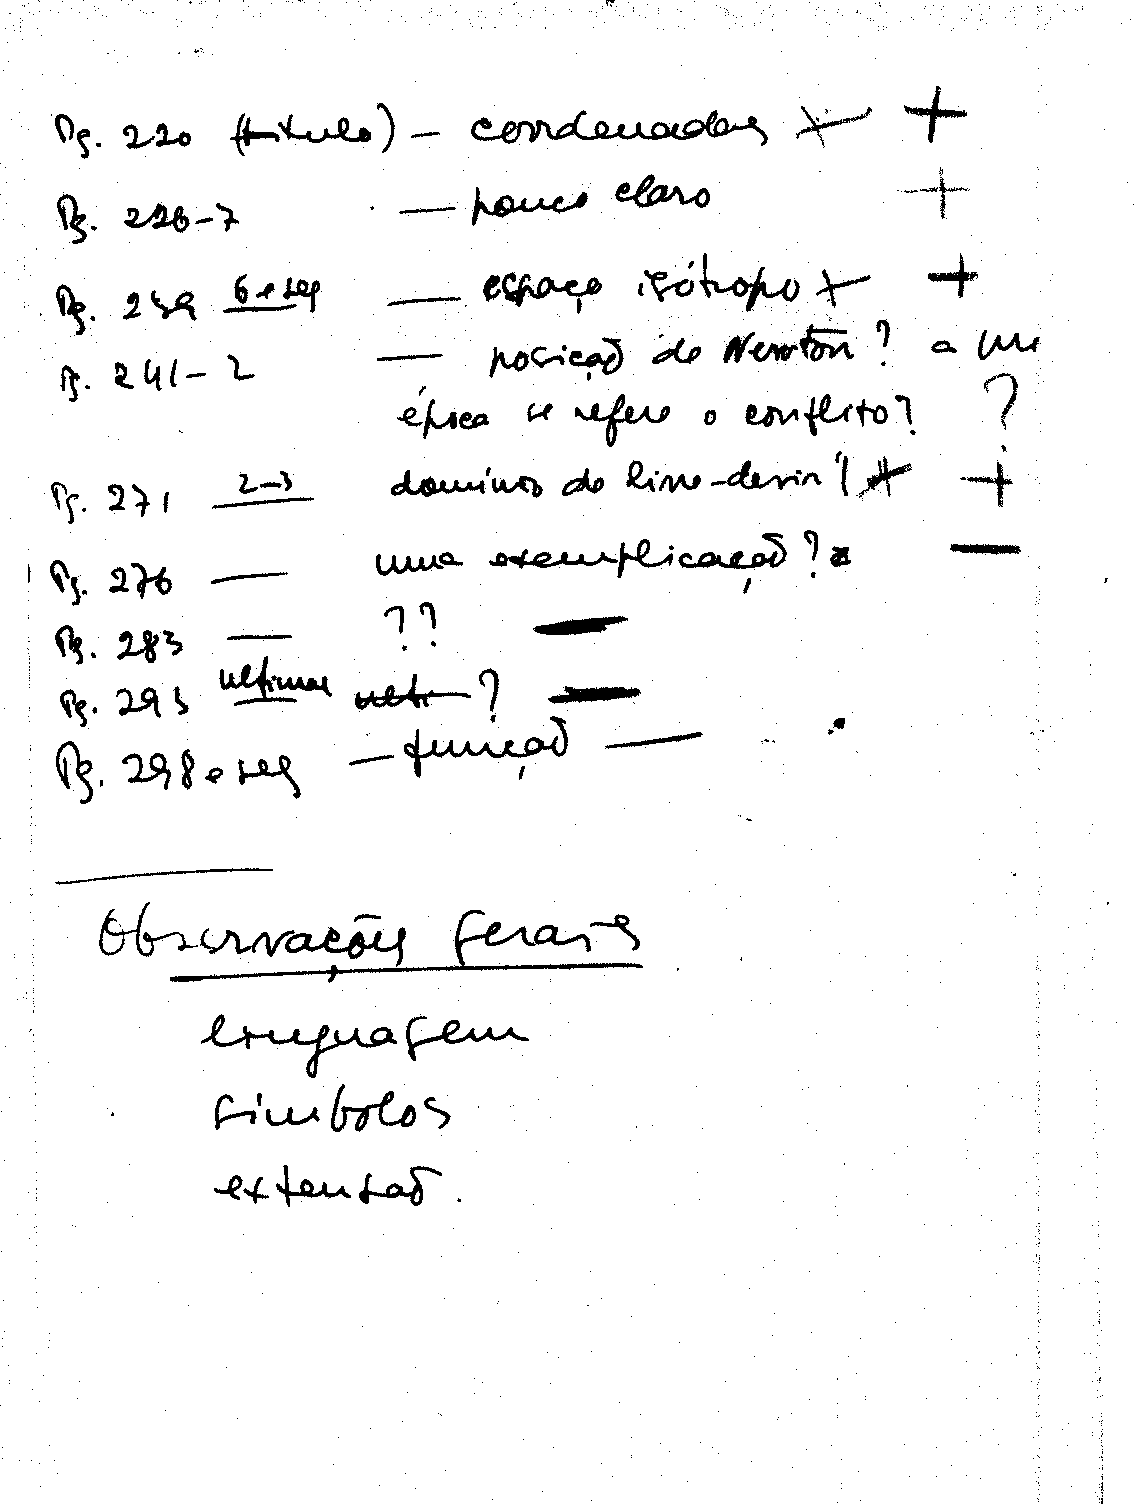 Pg. 220 (título) – coordenadas × +
Pg. 226-7 — pouco claro +
Pg. 239 6 e seg — espaço isótropo × +
Pg. 241-2 — posição de Newton? a que
época se refere o conflito? ?
Pg. 271 2-3 domínios de +
Pg. 276 — uma exemplicação? —
Pg. 283 — ?? —
Pg. 293 últimas ? —
Pg. 298 e seg — função —
Observações gerais
linguagem
símbolos
extensão.